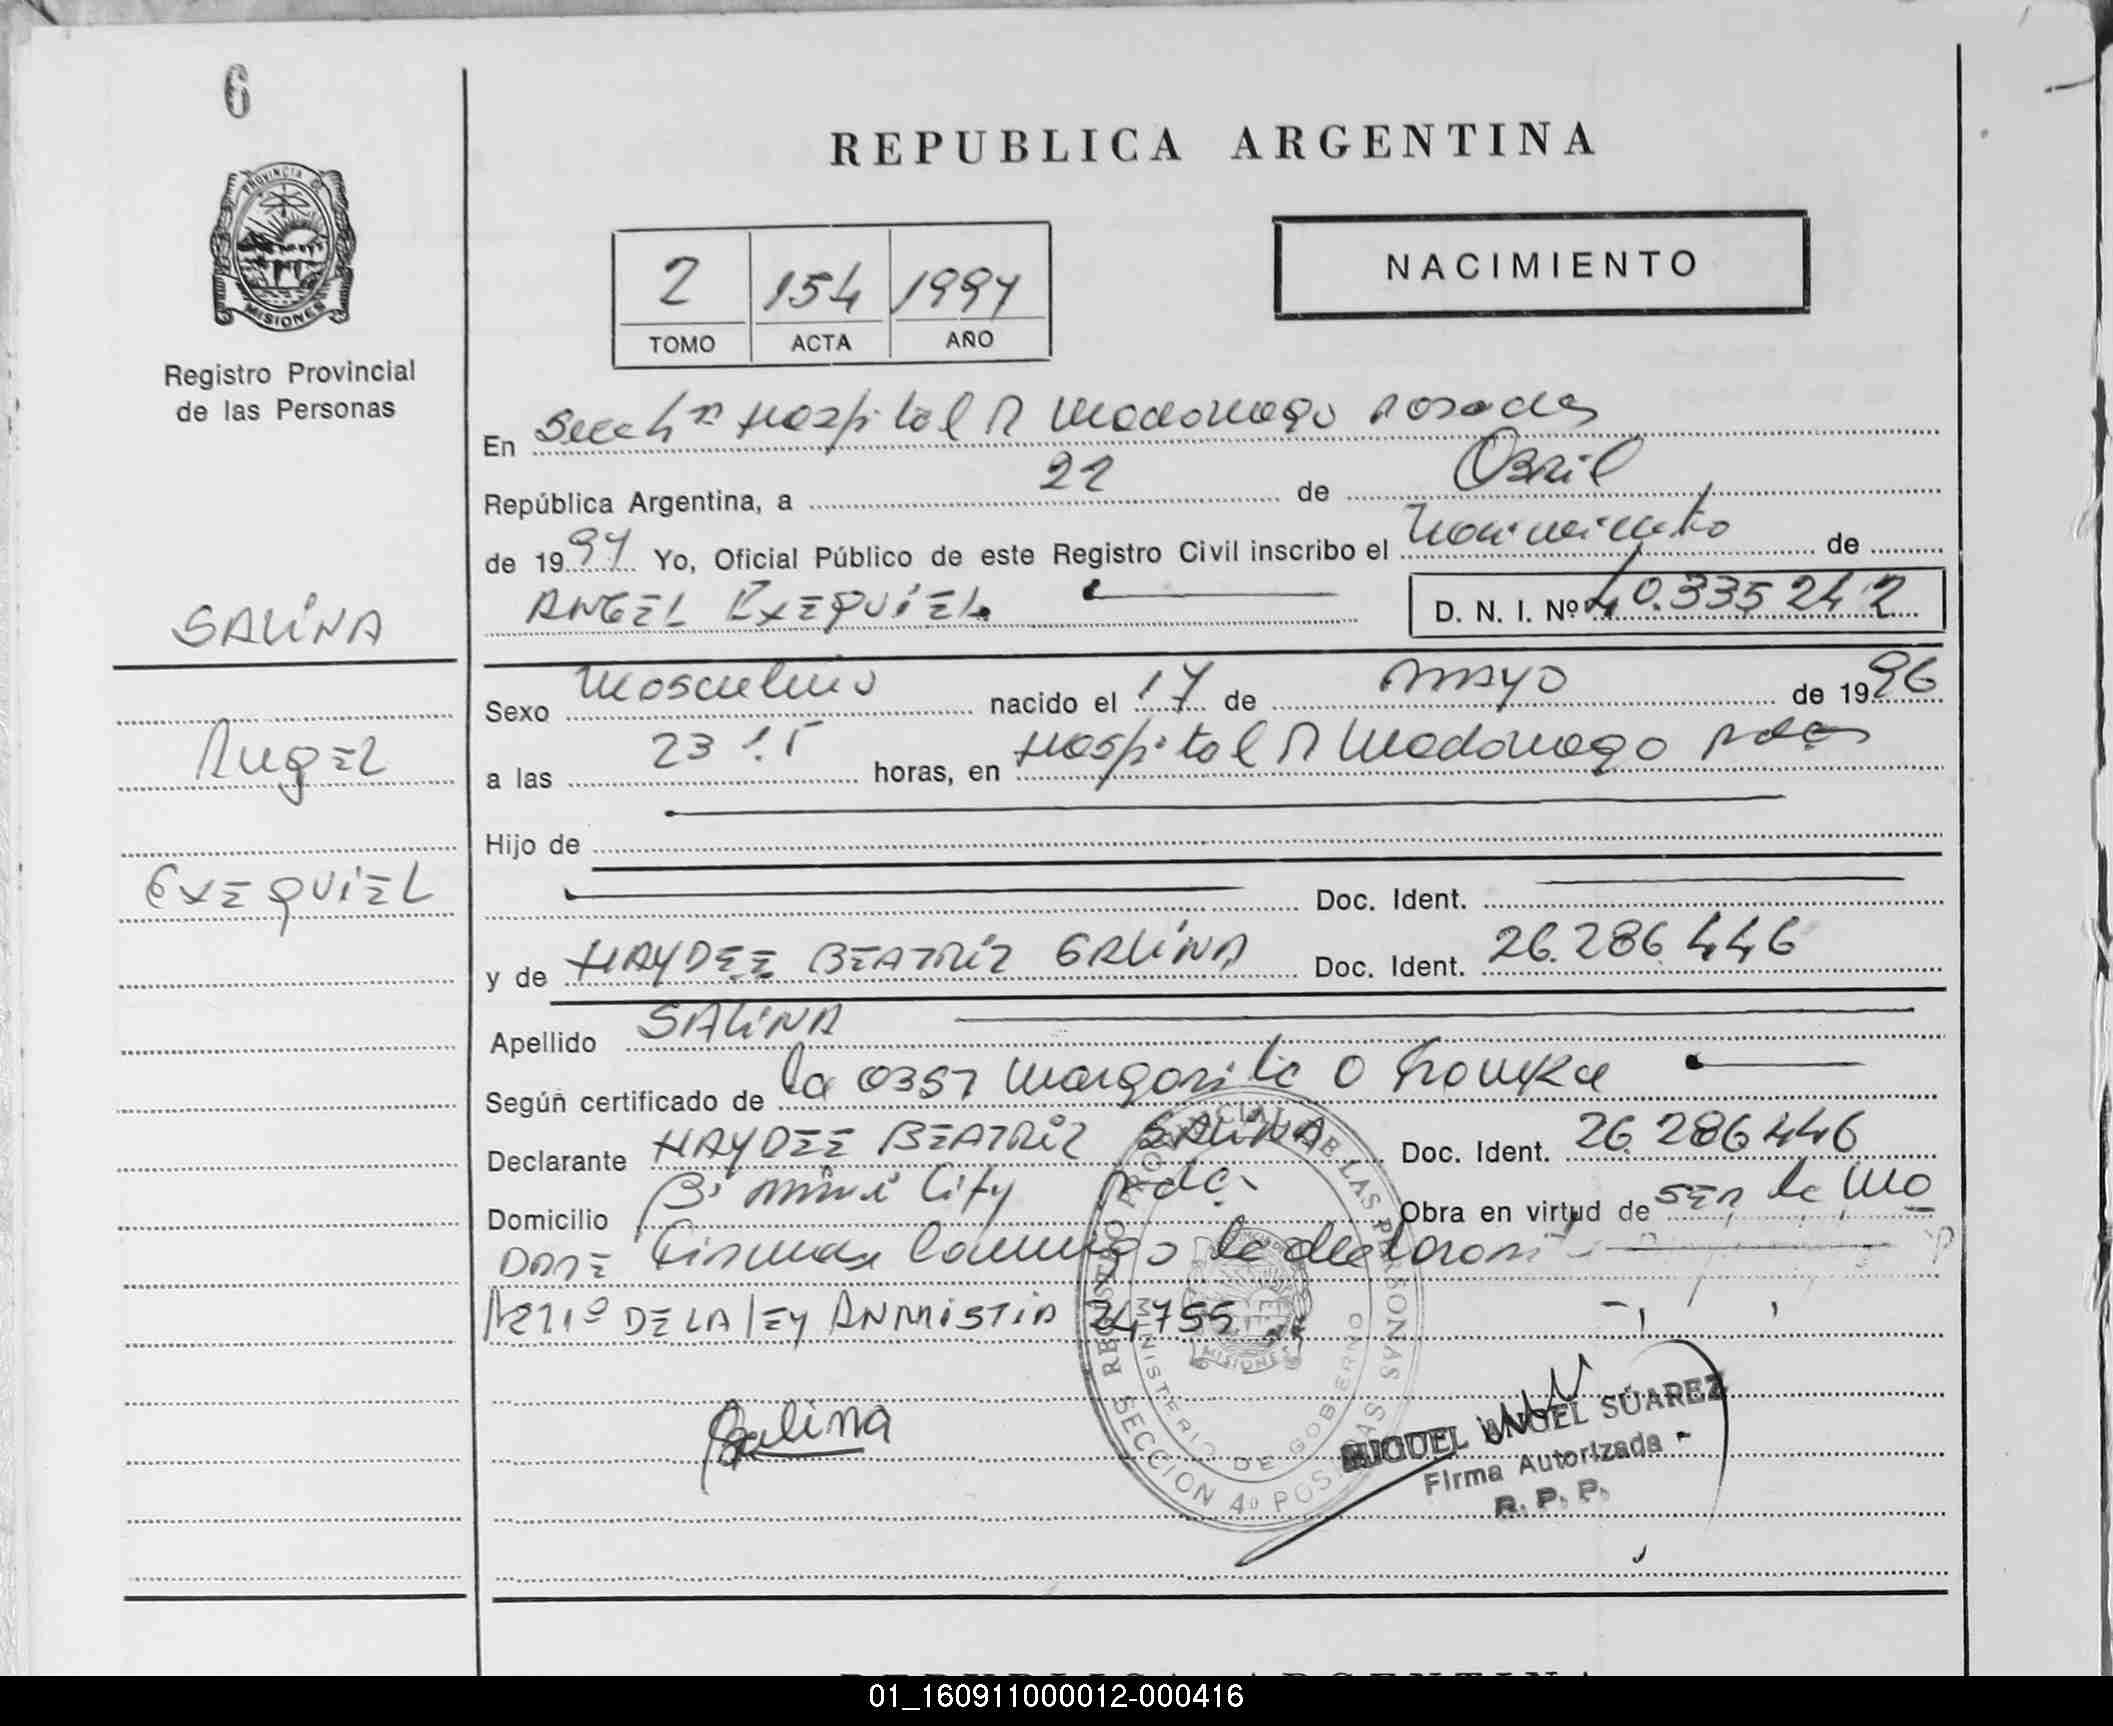 6
REPUBLICA ARGENTINA
PROVINCIA DE
MISIONES
Registro Provincial
de las Personas
2 154 1997
TOMO ACTA AÑO
NACIMIENTO
En Secc 4ta Hospital R Madariaga Posadas
República Argentina, a 22 de Abril
de 1997 Yo, Oficial Público de este Registro Civil inscribo el nacimiento de
ANGEL EXEQUIEL D. N. I. Nº 40.335 242
SALINA
Angel
EXEQUIEL
Sexo Masculino nacido el 17 de mayo de 1996
a las 23 15 horas, en Hospital R Madariaga Pdas
Hijo de
Doc. Ident.
y de HAYDEE BEATRIZ SALINA Doc. Ident. 26.286 446
Apellido SALINA
Según certificado de la Obst Margarita O
Declarante HAYDEE BEATRIZ SALINA Doc. Ident. 26.286 446
Domicilio Bº mini City Pdas Obra en virtud de ser la ma
DRE Firman conmigo la declarante
Art 11º DE LA LEY ANMISTIA 24755
Salina
REGISTRO PROVINCIAL DE LAS PERSONAS
MINISTERIO DE GOBIERNO
MISIONES
SECCION 4º POSADAS
MIGUEL ANGEL SÚAREZ
Firma Autorizada
R. P. P.
REPUBLICA ARGENTINA
01_160911000012-000416